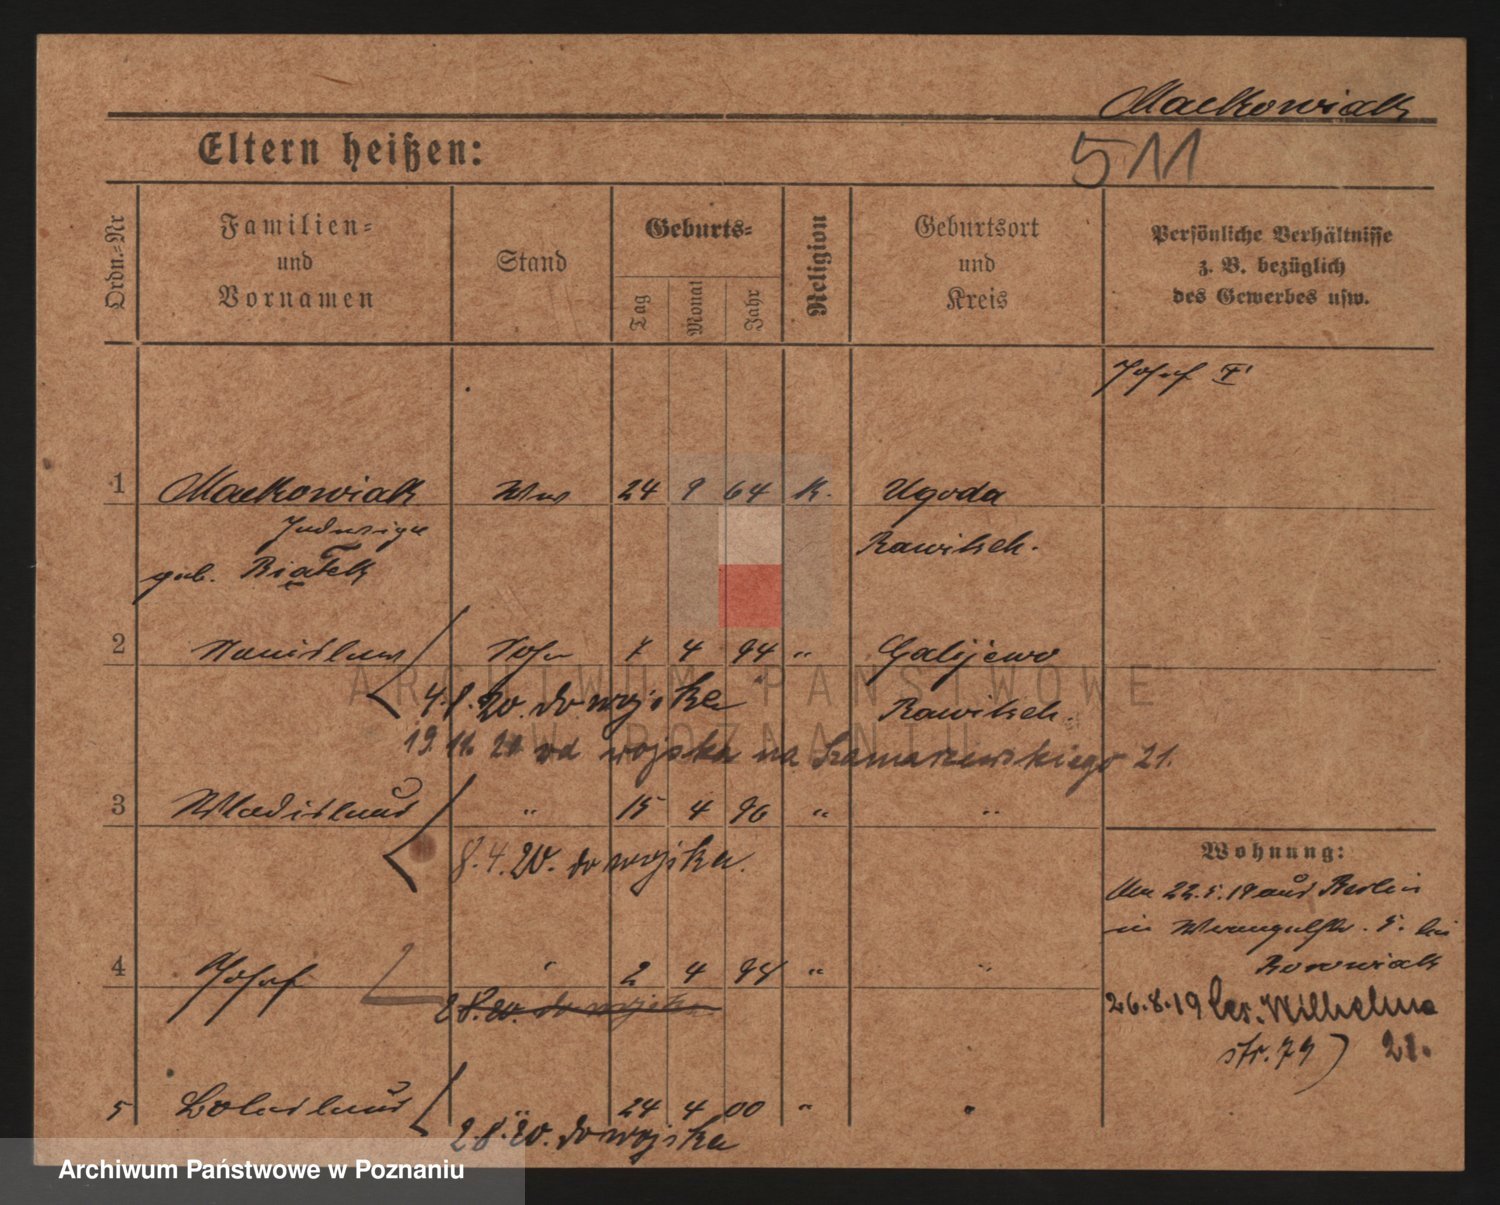 Mackowiak
Eltern heißen:
511
Ordn.-Nr
Familien-
und
Vornamen
Stand
Geburts-
Tag
Monat
Jahr
Religion
Geburtsort
und
Kreis
Persönliche Verhältnisse
z. B. bezüglich
des Gewerbes usw.
Josef
1 Mackowiak Ww 24 9 64 K. Ugoda
Jadwiga Rawitsch.
geb. Białek
2 Stanislaus Sohn 4 94 " Galijewo
4.8.20. do wojska Rawitsch.
19.11.20 od wojska na Szamarzewskiego 21.
3 Wladislaus " 15 4 96 " "
8.4.20. do wojska.
Wohnung:
Am 22.5.19 aus Berlin
in Wrangelstr. 5. bei
Borowiak
4 Josef " 2 4 98 " "
2.8.20. do wojska
26.8.19 Wilhelm
str. 79) 21.
5 Boleslaus 24 4 00 "
2.8.20. do wojska
ARCHIWUM PAŃSTWOWE
W POZNANIU
Archiwum Państwowe w Poznaniu